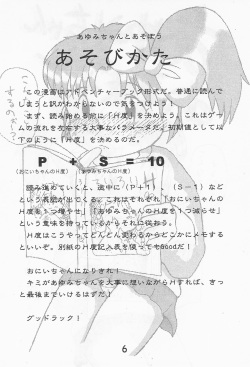 あゆみちゃんとあそぼう
あそびかた
この漫画はアドベンチャーブック形式だ。普通に読んで
しまうと訳がわからないので気をつけよう！
まず、読み始める前に「H度」を決めよう。これはゲー
ムの流れを左右する大事なパラメータだ。初期値として以
下のように「H度」を決めるのだ。
P + S = 10
(おにいちゃんのH度) (あゆみちゃんのH度)
読み進めていくと、途中に（P+1）、（S-1）など
という表記が出てくる。これはそれぞれ「おにいちゃんの
H度を1つ増やせ」「あゆみちゃんのH度を1つ減らせ」
という意味を持っているからそれに従おう。
H度はこうやってどんどん変わるからどこかにメモする
といいぞ。別紙のH度記入表を使ってもGood だ！
おにいちゃんになりきれ！
キミがあゆみちゃんを大事に想いながらHすれば、きっ
と最後までいけるはずだ！
グッドラック！
6